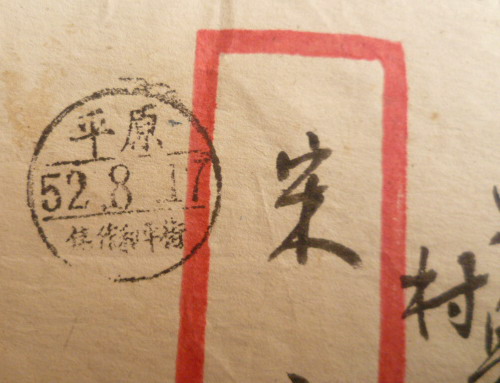 平原
52.8.17
焦作和平街
宋
村